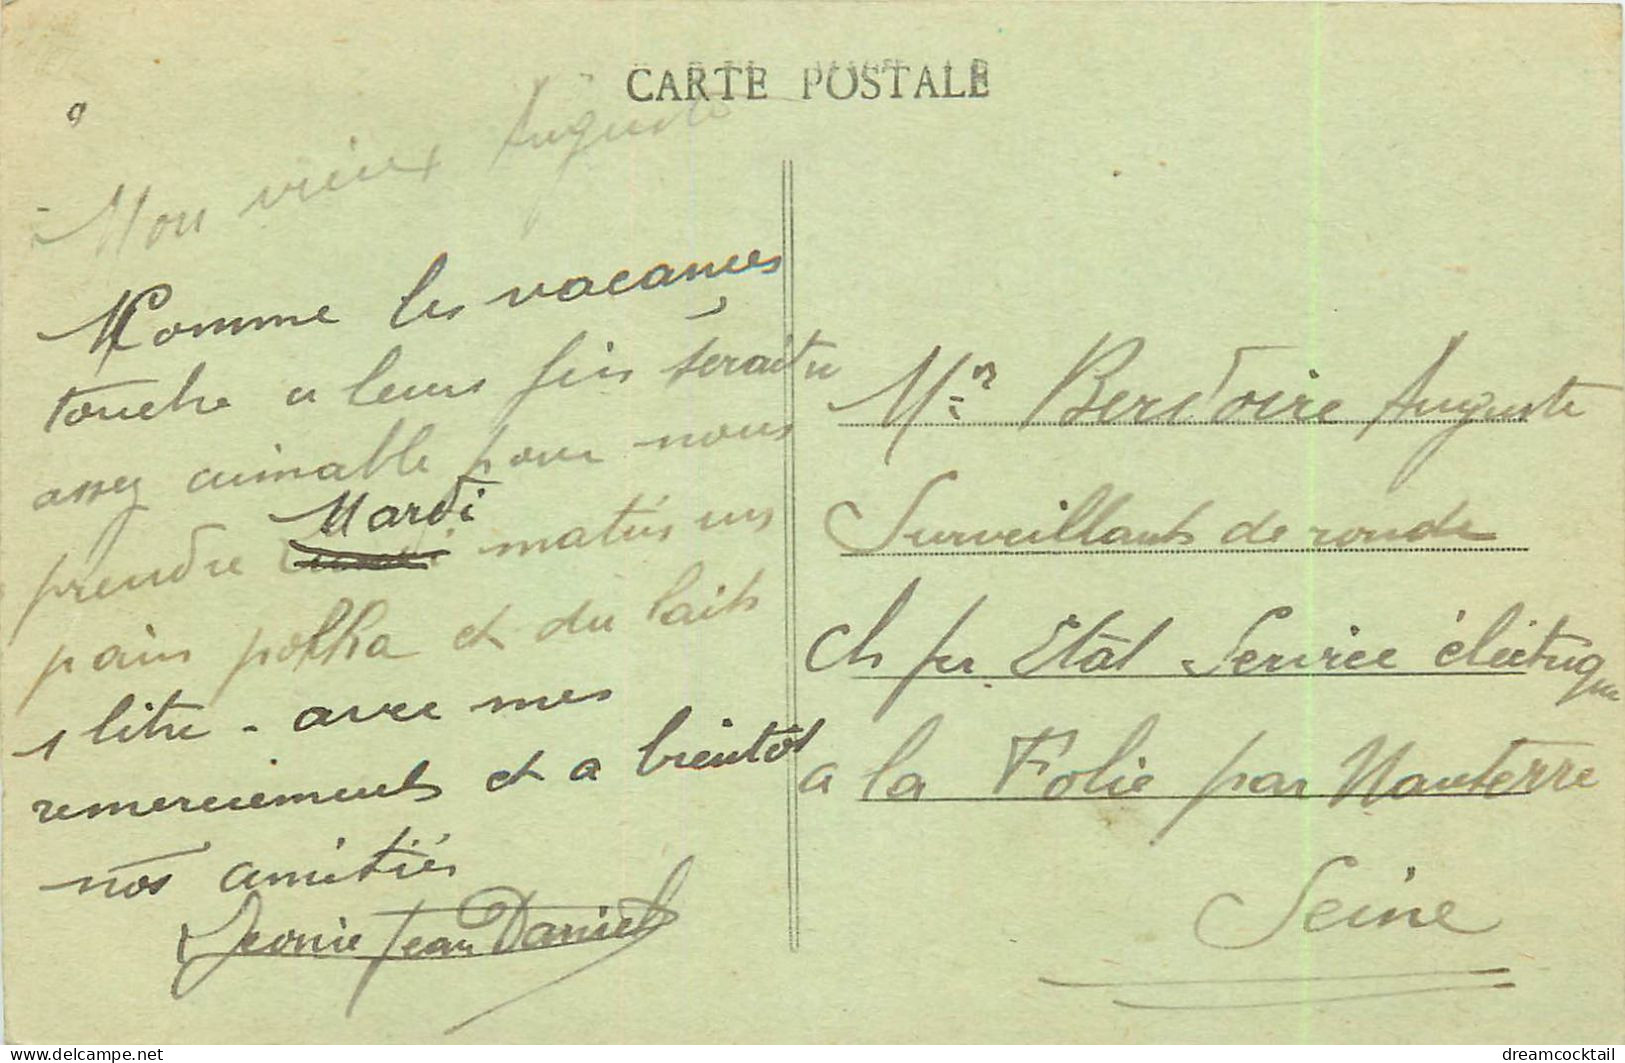 CARTE POSTALE
Mon vieux Auguste
Comme les vacances
touche a leurs fin seraitu
assez aimable pour nous
Mardi
prendre matin un
pain polka et du lait
1 litre - avec mes
remerciements et a bientot
nos amitiés
Leonie Jean Daniel
Mr Berdoire Auguste
Surveillant de ronde
Ch fer Etat Service électrique
a la Folie par Nanterre
Seine
delcampe.net
dreamcocktail